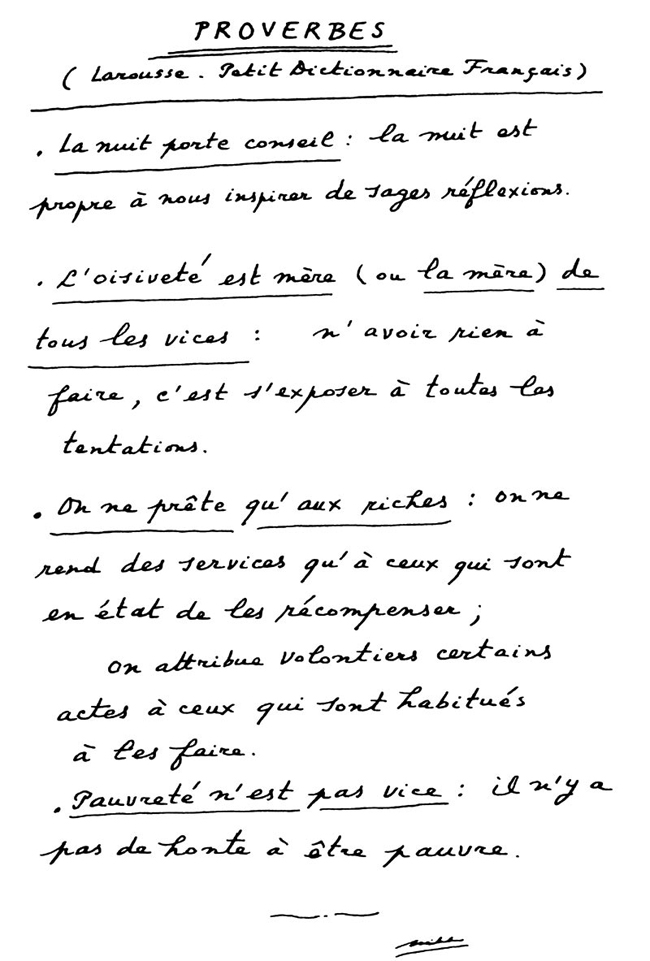 PROVERBES
(Larousse. Petit Dictionnaire Français)
. La nuit porte conseil : la nuit est
propre à nous inspirer de sages réflexions.
. L'oisiveté est mère (ou la mère) de
tous les vices : n'avoir rien à
faire, c'est s'exposer à toutes les
tentations.
. On ne prête qu'aux riches : on ne
rend des services qu'à ceux qui sont
en état de les récompenser ;
on attribue volontiers certains
actes à ceux qui sont habitués
à les faire.
. Pauvreté n'est pas vice : il n'y a
pas de honte à être pauvre.